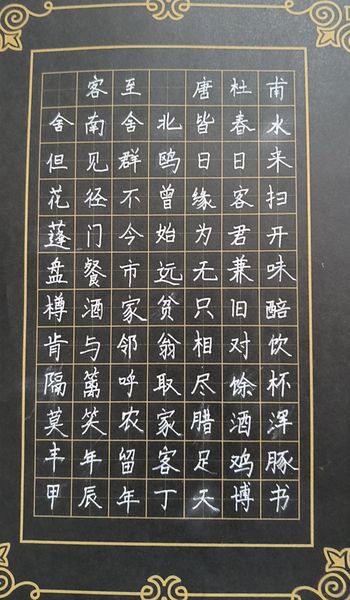 客至 唐杜甫
舍南舍北皆春水
但见群鸥日日来
花径不曾缘客扫
蓬门今始为君开
盘餐市远无兼味
樽酒家贫只旧醅
肯与邻翁相对饮
隔篱呼取尽馀杯
莫笑农家腊酒浑
丰年留客足鸡豚
甲辰年丁天博书